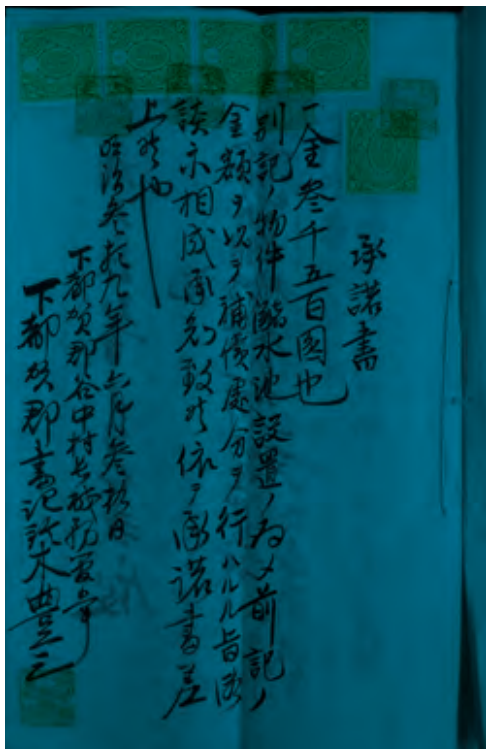 承諾書
一金参千五百圓也
別記ノ物件瀦水池設置ノ為メ前記ノ
金額ヲ以テ補償處分ヲ行ハルル旨御
談示相成承知致候依テ承諾書差
上候也
明治参拾九年六月参拾日
下都賀郡谷中村長職務管掌
下都賀郡書記鈴木豊三